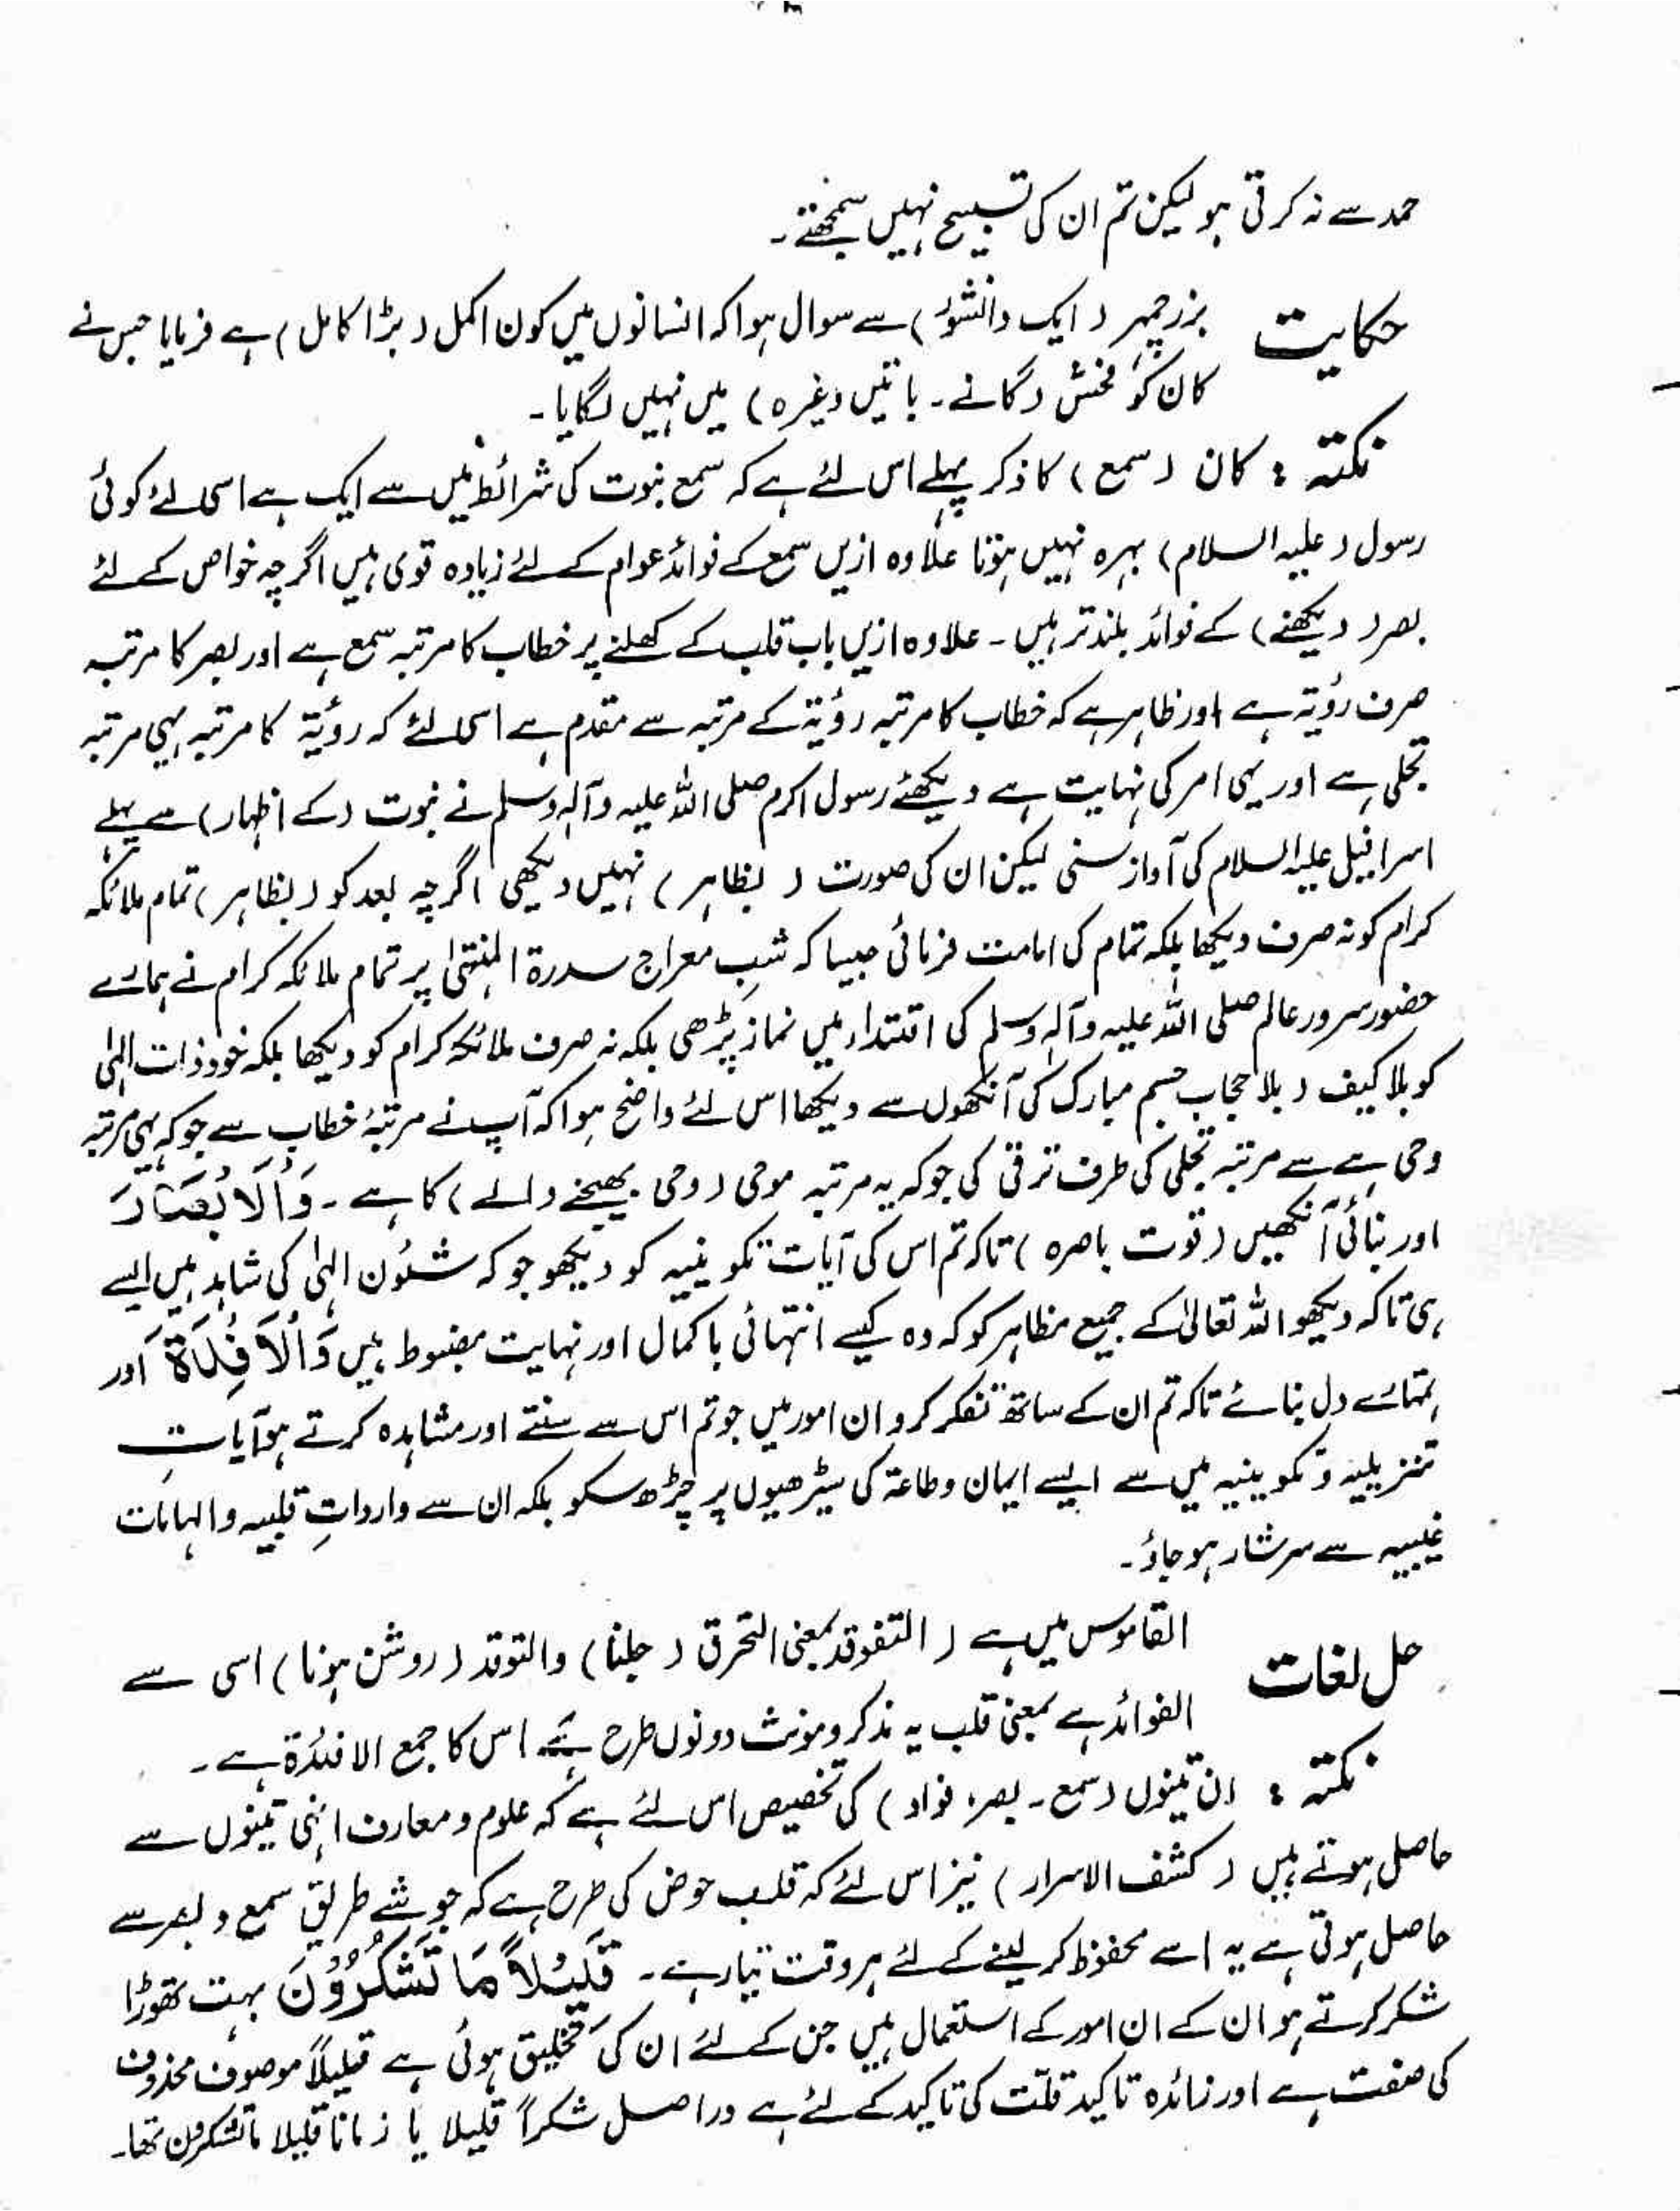 حمد سے نہ کرتی ہو لیکن تم ان کی تسبیح نہیں سمجھتے۔
حکایت بزرجمہر (ایک دانشور) سے سوال ہوا کہ انسانوں میں کون اکمل (بڑا کامل) ہے فرمایا جس نے
کان کو فحش (گانے۔ باتیں وغیرہ) میں نہیں لگایا۔
نکتہ : کان (سمع) کا ذکر پہلے اس لئے ہے کہ سمع نبوت کی شرائط میں سے ایک ہے اسی لئے کوئی
رسول (علیہ السلام) بہرہ نہیں ہوتا علاوہ ازیں سمع کے فوائد عوام کے لئے زیادہ قوی ہیں اگرچہ خواص کے لئے
بصر (دیکھنے) کے فوائد بلند تر ہیں۔ علاوہ ازیں باب قلب کے کھلنے پر خطاب کا مرتبہ سمع ہے اور بصر کا مرتبہ
صرف رؤیۃ ہے اور ظاہر ہے کہ خطاب کا مرتبہ رؤیۃ کے مرتبہ سے مقدم ہے اسی لئے کہ رؤیۃ کا مرتبہ یہی مرتبہ
تجلی ہے اور یہی امر کی نہایت ہے دیکھئے رسول اکرم صلی اللہ علیہ وآلہ وسلم نے نبوت (کے اظہار) سے پہلے
اسرافیل علیہ السلام کی آواز سنی لیکن ان کی صورت (بظاہر) نہیں دیکھی اگرچہ بعد کو (بظاہر) تمام ملائکہ
کرام کو نہ صرف دیکھا بلکہ تمام کی امامت فرمائی جیسا کہ شب معراج سدرۃ المنتہیٰ پر تمام ملائکہ کرام نے ہمارے
حضور سرور عالم صلی اللہ علیہ وآلہ وسلم کی اقتداء میں نماز پڑھی بلکہ نہ صرف ملائکہ کرام کو دیکھا بلکہ خود ذات الٰہی
کو بلا کیف (بلا حجاب جسم مبارک کی آنکھوں سے دیکھا اس لئے واضح ہوا کہ آپ نے مرتبۂ خطاب سے جو کہ یہی مرتبہ
وحی ہے سے مرتبہ تجلی کی طرف ترقی کی جو کہ یہ مرتبہ موحی (وحی بھیجنے والے) کا ہے۔ وَالْاَبْصَارَ
اور بنائی آنکھیں (قوت باصرہ) تاکہ تم اس کی آیات تکوینیہ کو دیکھو جو کہ شئون الٰہی کی شاہد ہیں ایسے
ہی تاکہ دیکھو اللہ تعالیٰ کے جمیع مظاہر کو کہ وہ کیسے انتہائی باکمال اور نہایت مضبوط ہیں وَالْاَفْئِدَۃَ اور
تمہارے دل بنائے تاکہ تم ان کے ساتھ تفکر کرو ان امور میں جو تم اس سے سنتے اور مشاہدہ کرتے ہو آیاتِ
تنزیلیہ و تکوینیہ میں سے ایسے ایمان وطاعۃ کی سیڑھیوں پر چڑھ سکو بلکہ ان سے وارداتِ قلبیہ والہامات
غیبیہ سے سرشار ہو جاؤ۔
حل لغات القاموس میں ہے (التفوقد بمعنی التحرق (جلنا) والتوقد (روشن ہونا) اسی سے
الفوائد ہے بمعنی قلب یہ مذکر ومونث دونوں طرح ہے اس کا جمع الافئدۃ ہے۔
نکتہ : ان تینوں (سمع۔ بصر، فواد) کی تخصیص اس لئے ہے کہ علوم ومعارف انہی تینوں سے
حاصل ہوتے ہیں (کشف الاسرار) نیز اس لئے کہ قلب حوض کی طرح ہے کہ جو شے طریق سمع و بصر سے
حاصل ہوتی ہے یہ اسے محفوظ کر لینے کے لئے ہر وقت تیار ہے۔ قَلِیْلاً مَا تَشْکُرُوْنَ بہت تھوڑا
شکر کرتے ہو ان کے ان امور کے استعمال میں جن کے لئے ان کی تخلیق ہوئی ہے قلیلاً موصوف محذوف
کی صفت ہے اور زائدہ تاکید قلّت کی تاکید کے لئے ہے دراصل شکراً قلیلا یا زمانا قلیلا ماتشکرون تھا۔